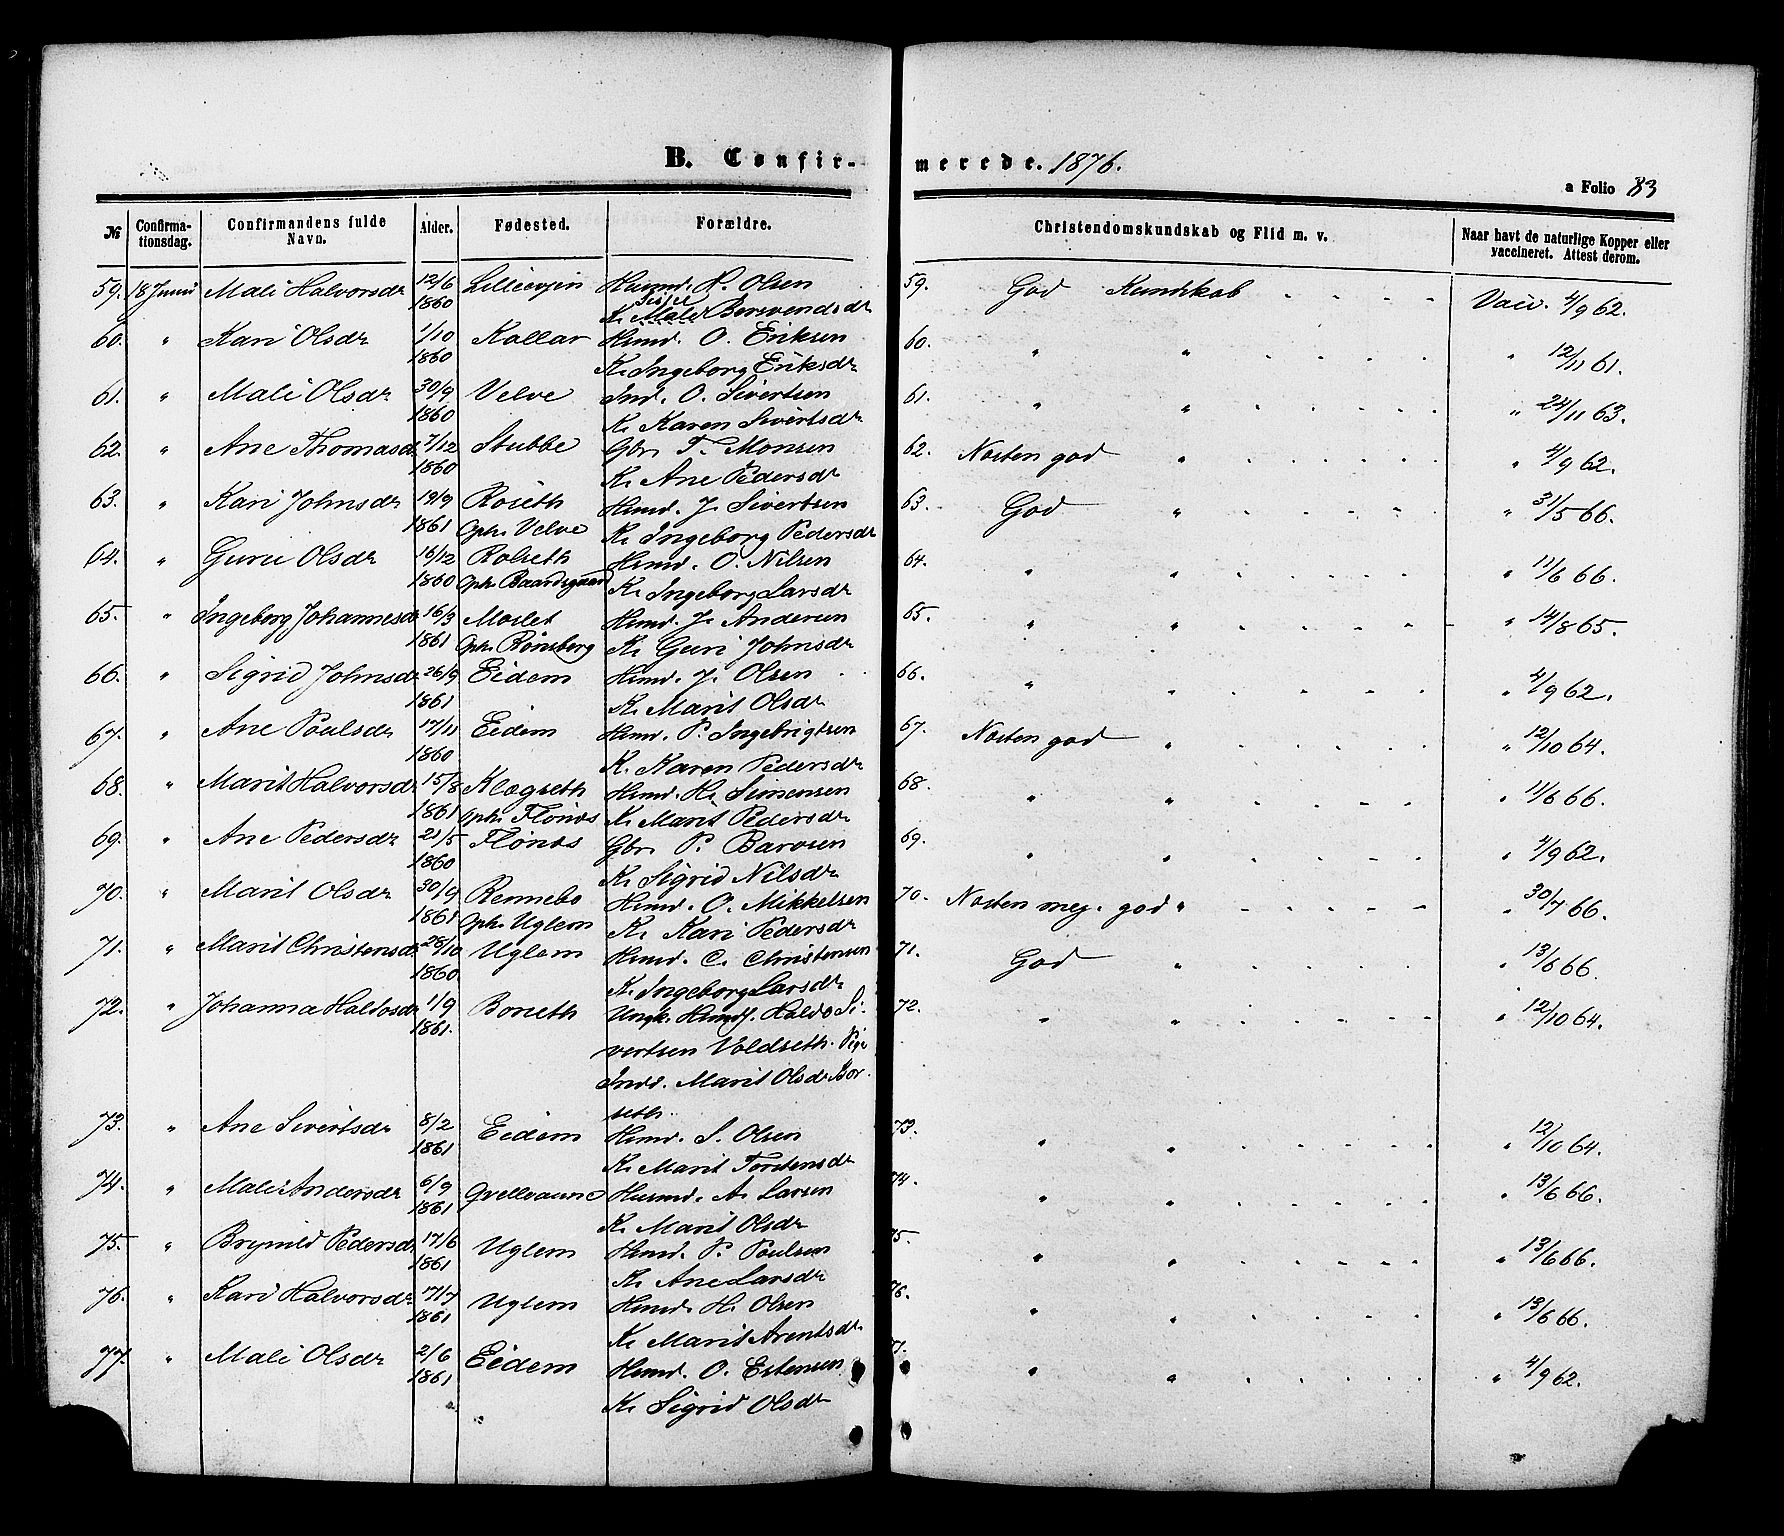 B. Confir- merede. 1876.
a Folio 83
№ Confirma-tionsdag. Confirmandens fulde Navn. Alder. Fødested. Forældre. Christendomskundskab og Flid m. v. Naar havt de naturlige Kopper eller vaccineret. Attest derom.
59. 18 Juni Mali Halvorsdr 12/6 Lilleevjen Husmd. H. Olsen 59. God Kundskab - - - - Vacc. 4/9 62.
1860 K. Bersvendsdr
60. " Kari Olsdr 1/10 Kollar Husmd. O. Eriksen 60. " " " 12/11 61.
1860 K. Ingeborg Eriksdr
61. " Mali Olsdr 30/9 Velve Ind. O. Sivertsen 61. " " " 24/11 63.
1860 K. Karen Sivertsdr
62. " Ane Thomasdr 7/12 Stubbe Gbr. T. Monsen 62. Næsten god " " 4/9 62.
1860 K. Ane Pedersdr
63. " Kari Johnsdr 19/9 Roseth Husmd. J. Sivertsen 63. God " " 31/5 66.
1861 Oph. Velve K. Ingeborg Pedersdr
64. " Guru Olsdr 16/12 Rolseth Husmd. O. Nilsen 64. " " " 11/6 66.
1860 Oph. Baardsgaard K. Ingeborg Larsdr
65. " Ingeborg Johannesdr 16/3 Moslet Husmd. J. Andersen 65. " " " 14/8 65.
1861 Oph. Rønsberg K. Guri Johnsdr
66. " Sigrid Johnsdr 26/9 Eidem Husmd. J. Olsen 66. " " " 4/9 62.
1861 K. Marit Olsdr
67. " Ane Poulsdr 17/11 Eidem Husmd. P. Ingebrigtsen 67. Næsten god " " 12/10 64.
1860 K. Karen Pedersdr
68. " Marit Halvorsdr 15/8 Klegseth Husmd. H. Simensen 68. " " " 11/6 66.
1861 Oph. Flønes K. Marit Pedersdr
69. " Ane Pedersdr 21/5 Flønes Gbr. P. Barosen 69. " " " 4/9 62.
1860 K. Sigrid Nilsdr
70. " Marit Olsdr 30/9 Rennebo Husmd. O. Mikkelsen 70. Næsten meg. god " " 30/7 66.
1861 Oph. Uglem K. Kari Pedersdr
71. " Marit Christensdr 28/10 Uglem Husmd. C. Christensen 71. God " " 13/6 66.
1860 K. Ingeborg Larsdr
72. " Johanna Haldosdr 1/9 Borseth Ungk. Husmd. Haldo Si- 72. " " " 12/10 64.
1861. vertsen Voldseth. Pige
Inds. Marit Olsdr Bor-
seth.
73. " Ane Sivertsdr 8/2 Eidem Husmd. S. Olsen 73. " " " 12/10 64.
1861 K. Marit Torstensdr
74. " Mali Andersdr 6/9 Gvellvaune Husmd. A. Larsen 74. " " " 13/6 66.
1861 K. Marit Olsdr
75. " Brynild Pedersdr 17/6 Uglem Husmd. P. Poulsen 75. " " " 13/6 66.
1861 K. Ane Larsdr
76. " Kari Halvorsdr 7/7 Uglem Husmd. H. Olsen 76. " " " 13/6 66.
1861 K. Marit Arentsdr
77. " Mali Olsdr 2/6 Eidem Husmd. O. Estensen 77. " " " 4/9 62.
1861 K. Sigrid Olsdr